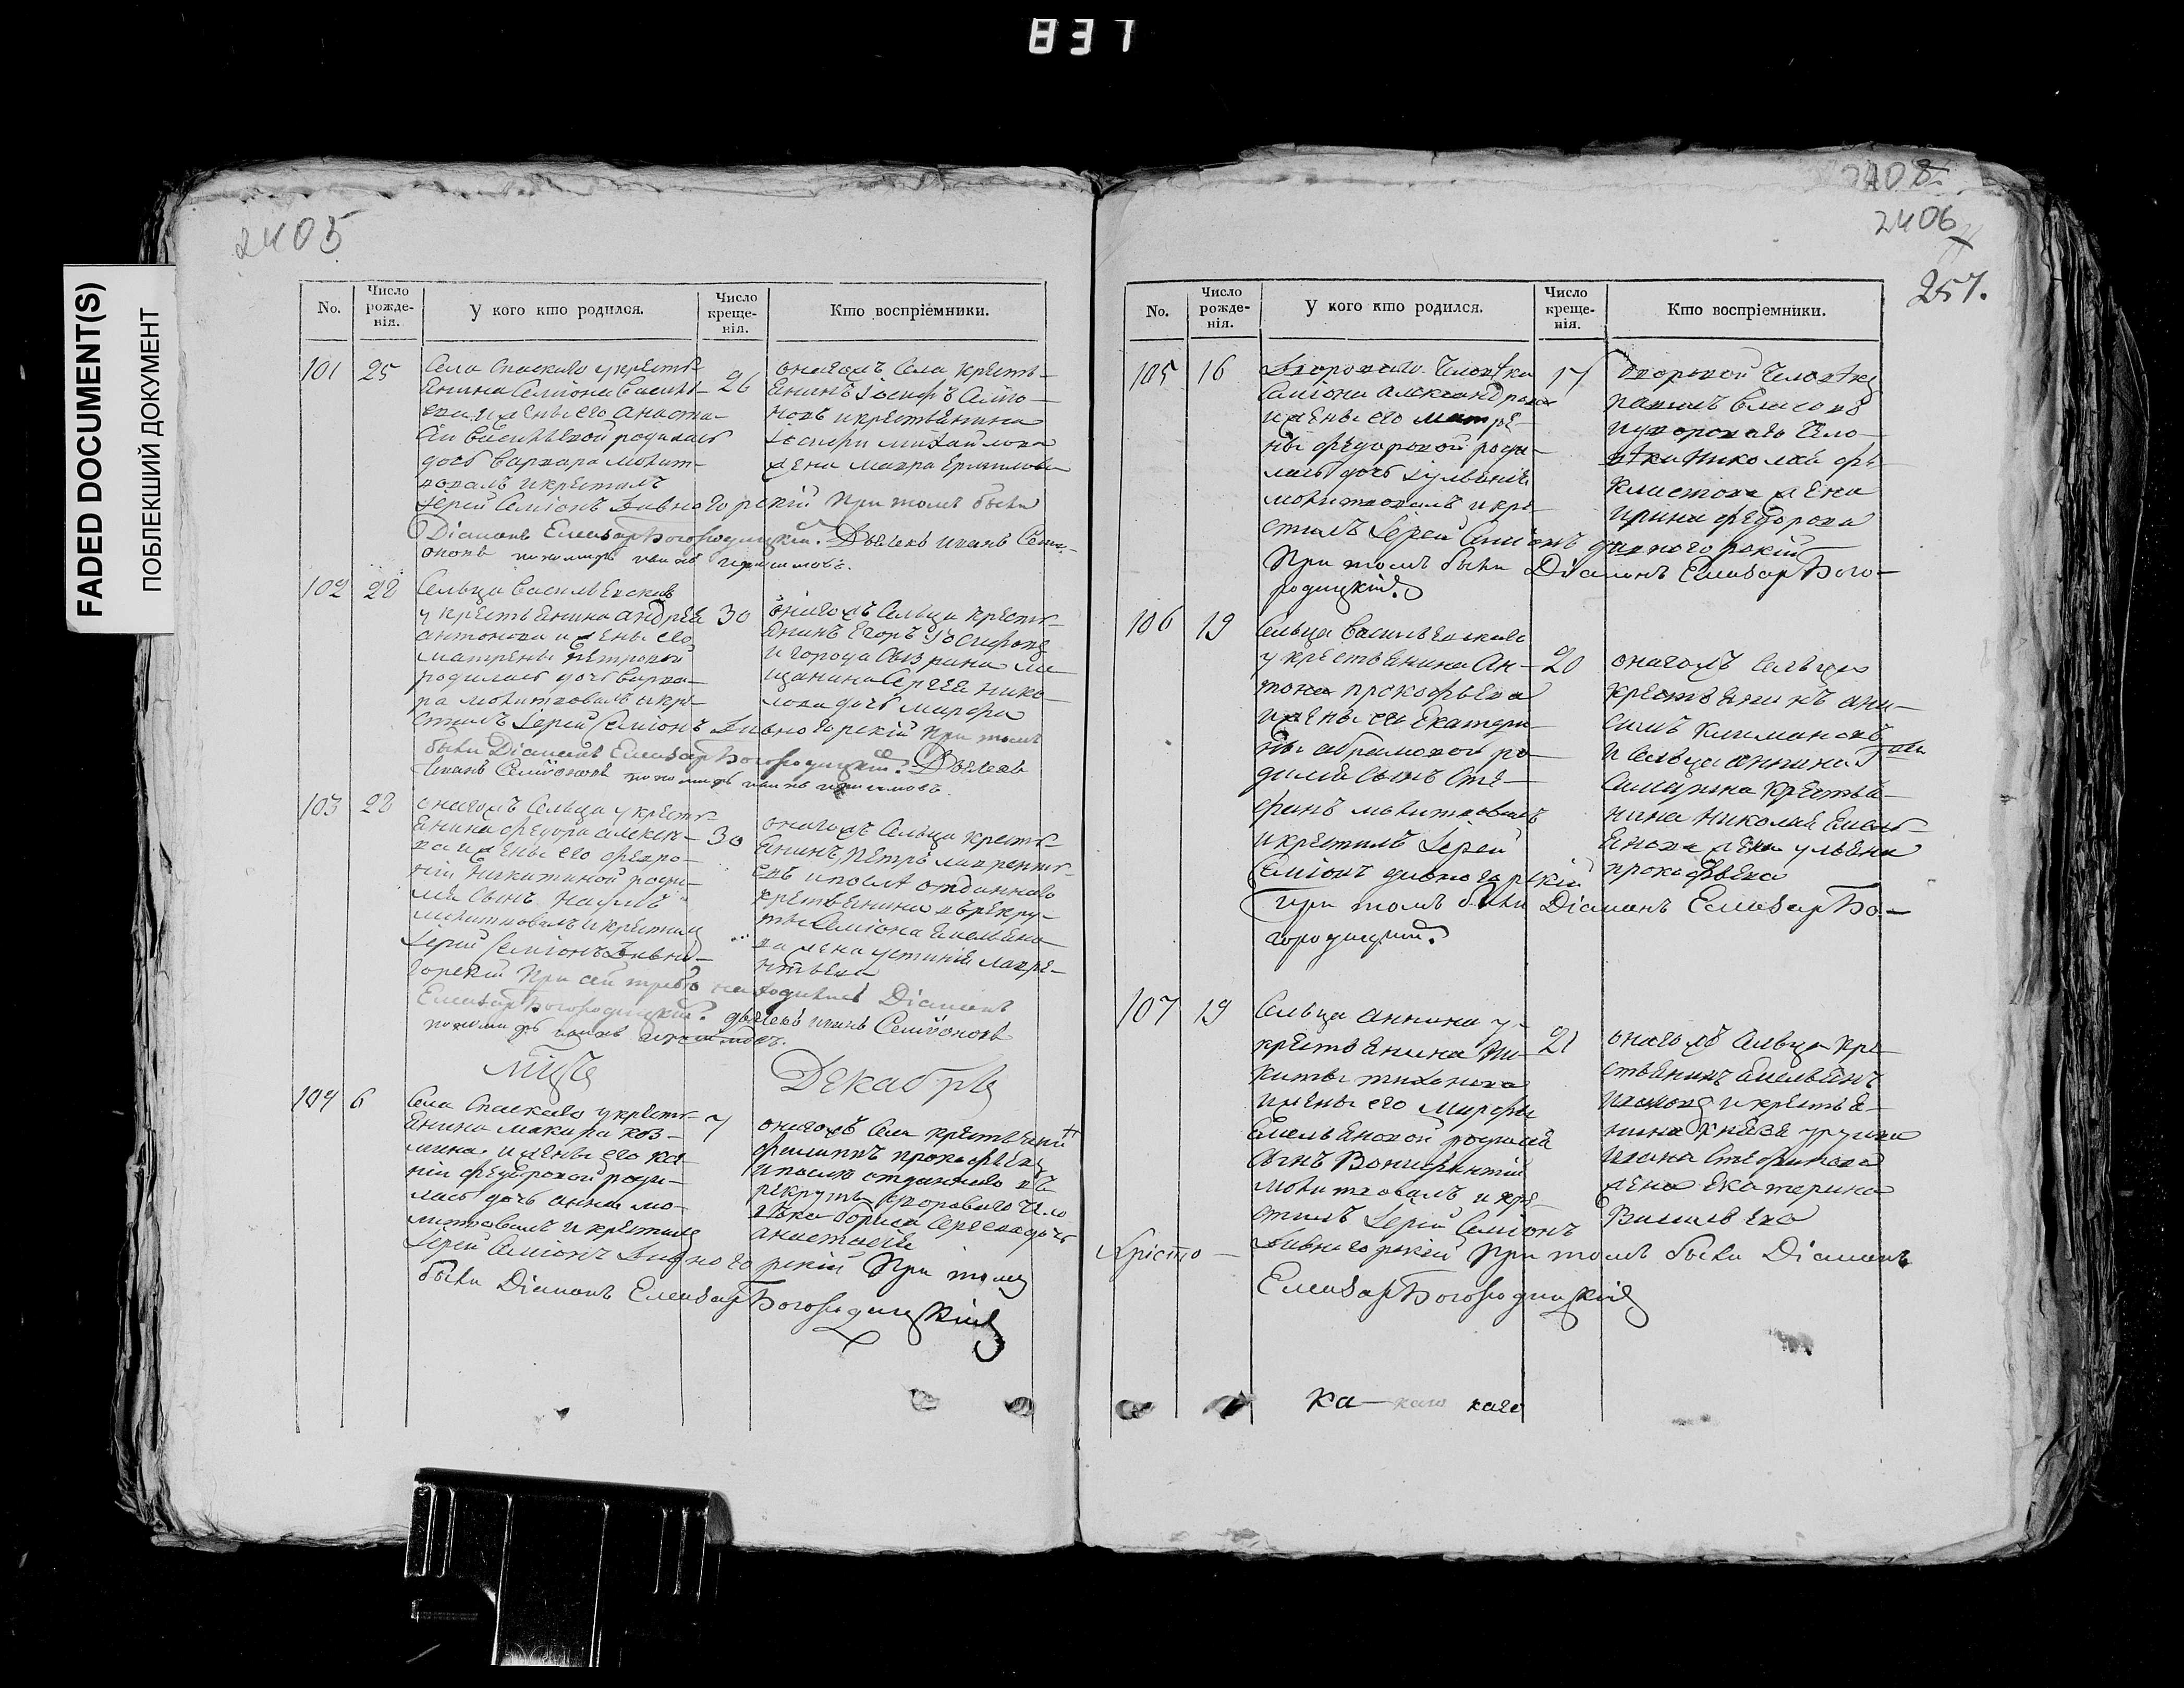 837
FADED DOCUMENT(S)
ПОБЛЕКШИЙ ДОКУМЕНТ
2405
No.
Число рожде-нія.
У кого кто родился.
Число креще-нія.
Кто воспріемники.
101 25
Села Спаскаго укресть
янина Семіона Василь-
ева и жены его анаста-
сіи Васильевой родилась
дочь варвара молит-
вовалъ икрестилъ
Іерей Семіонъ Дивногорскій при томъ были
Діаконъ Елеазаръ Богородицкій. Дьячекъ иванъ Семі-
оновъ пономарь
26
оногожъ Села кресть-
янинъ Іосифъ Семіо-
новъ икрестьянина
Іосифа михайлова
жена мавра
102 28
Сельца Васильевскаго
у крестьянина андрея
антонова и жены его
матрены петровой
родилась дочь варва-
ра молитвовалъ икре-
стилъ Іерей Семіонъ Дивногорскій при томъ
были Діаконъ Елеазаръ Богородицкій. Дьячекъ
Иванъ Семіоновъ пономарь
30
оногожъ Сельца кресть-
янинъ Егоръ Іосифовъ
и города Сызрана ме-
щанина Сергея нико-
лова дочь марфа
103 28
оногожъ Сельца укресть-
янина федора алексее-
ва и жены его февро-
ніи никитиной роди-
лся Сынъ наумъ
молитвовалъ икрестилъ
Іерей Семіонъ Дивно-
горскій при сей требе находились Діаконъ
Елеазаръ Богородицкій. дьячекъ иванъ Семіоновъ
пономарь
30
оногожъ Сельца кресть-
янинъ Петръ лаврентье-
евъ и после отданнаго
крестьянина въ рекру-
ты Семіона емельяно-
ва жена устинія лавре-
нтьева
Мцъ Декабрь
104 6
Села Спаскаго укресть-
янина макара коз-
мина и жены его ка-
ніи федоровой роди-
лась дочь анна мо-
литвовалъ и крестилъ
Іерей Семіонъ Дивногорскій При томъ
были Діаконъ Елеазаръ Богородицкій
7
оногожъ Села крестьянинъ
филиппъ прокофьевъ
и после отданнаго въ
рекруты двороваго чело
века бориса Сергеева дочь
анастасія
2408
2406
257.
No.
Число рожде-нія.
У кого кто родился.
Число креще-нія.
Кто воспріемники.
105 16
Двороваго человека
Семіона александрова
и жены его матре-
ны федоровой роди-
лась дочь Іульянія
молитвовалъ икре-
стилъ Іерей Семіонъ дивногорскій
При томъ были Діаконъ Елеазаръ Бого-
родицкій.
17
дворовой человекъ
павелъ власовъ
идвороваго чело-
века николая фе-
клистова жена
ирина федорова
106 19
Сельца Васильевскаго
у крестьянина Ан-
тона прокофьева
и жены его екатери-
ны абрамовой ро-
дился Сынъ Сте-
фанъ молитвовалъ
и крестилъ Іерей
Семіонъ дивногорскій
при томъ были Діаконъ Елеазаръ Бо-
городицкій.
20
оногожъ сельца
крестьянинъ они-
симъ
и Сельца аннина
Самарина крестья-
нина николая емель-
янова жена ульяна
прокофьева
107 19
Сельца аннина у
крестьянина Ни-
киты тихонова
и жены его марфы
Емельяновой родился
Сынъ Вонифантій
молитвовалъ и кре-
стилъ Іерей Семіонъ
Дивногорскій При томъ были Діаконъ
Елеазаръ Богородицкій
21
оногожъ Сельца кре-
стьянинъ емельянъ
ивановъ и крестья-
нина князя
ивана Стефанова
жена екатерина
Васильева
Хрісто-
ка- каго каго